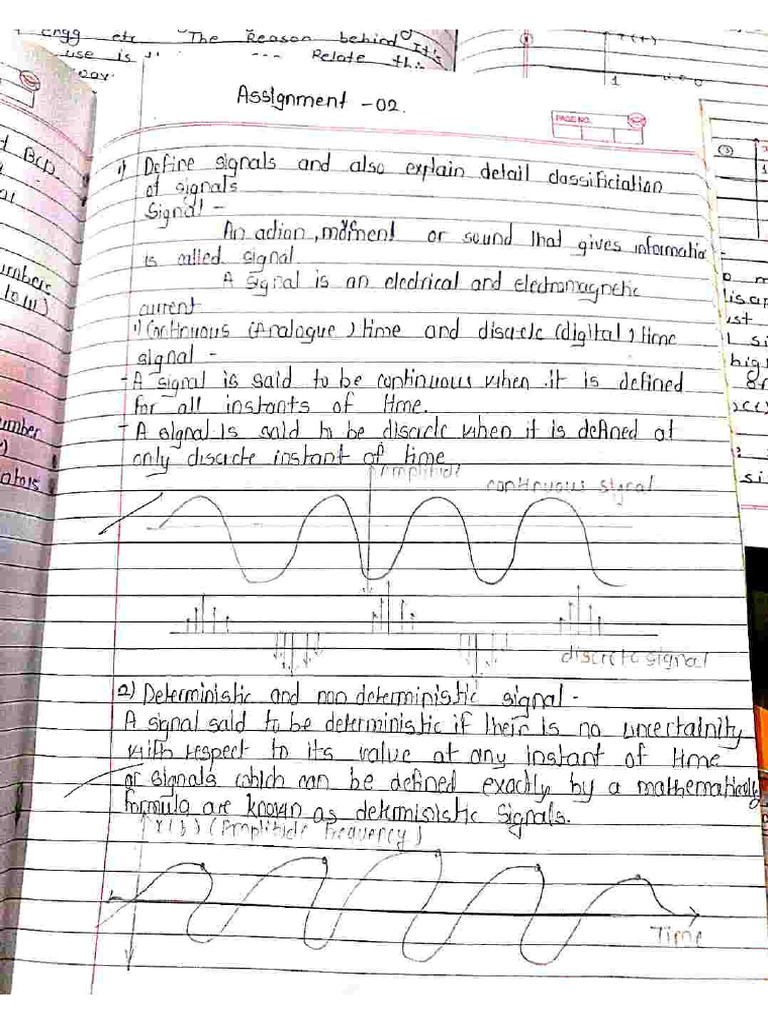 Engg etc The Reason behind It's
use is --- Relate this
Assignment - 02.
PAGE NO.
1) Define signals and also explain detail classificiation
of signals
Signal -
An action, moment or sound that gives informatio
is called signal.
A signal is an eledrical and electromagnetic
current
1) Continuous (Analogue) time and discrete (digital) time
signal -
- A signal is said to be continuous when it is defined
for all instants of time.
- A signal is said to be discrete when it is defined at
only discrete instant of time
Amplitude
continuous signal
discrete signal
2) Deterministic and non deterministic signal -
A signal said to be deterministic if their is no uncertainity
with respect to its value at any instant of time
or signals which can be defined exactly by a mathematicaly
formula are known as deterministic signals.
x(t) (Amplitide frequency)
Time